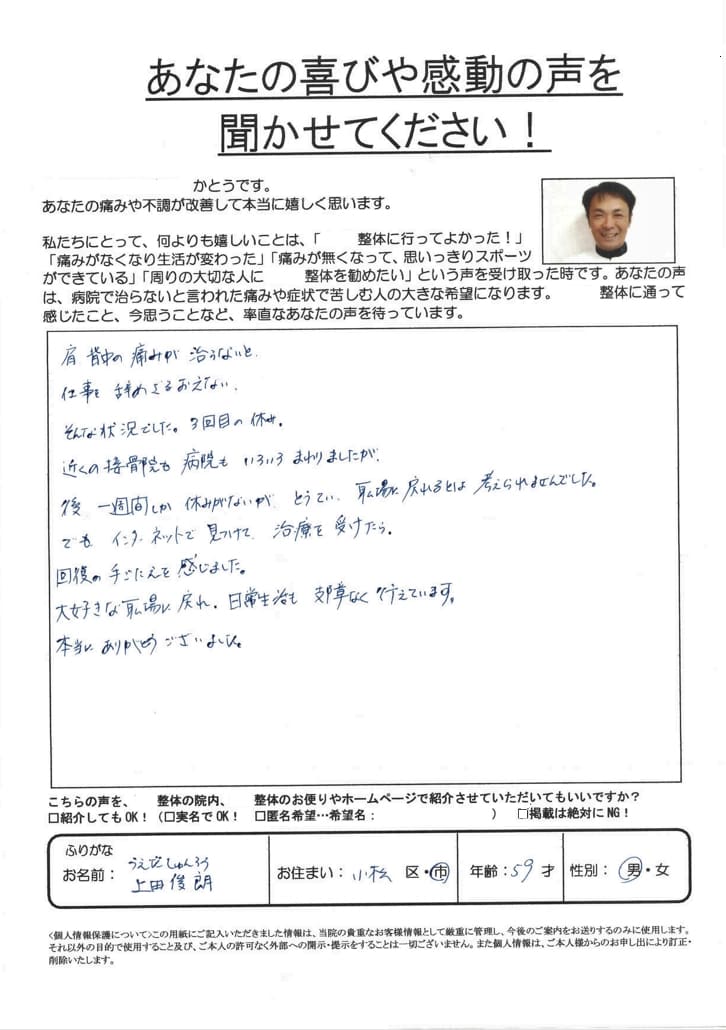 あなたの喜びや感動の声を
聞かせてください！
かとうです。
あなたの痛みや不調が改善して本当に嬉しく思います。
私たちにとって、何よりも嬉しいことは、「　　整体に行ってよかった！」
「痛みがなくなり生活が変わった」「痛みが無くなって、思いっきりスポーツ
ができている」「周りの大切な人に　　整体を勧めたい」という声を受け取った時です。あなたの声
は、病院で治らないと言われた痛みや症状で苦しむ人の大きな希望になります。　　整体に通って
感じたこと、今思うことなど、率直なあなたの声を待っています。
肩 背中の痛みが 治うないと、
仕事を 辞めざるおえない、
そんな状況でした。3回目の休み。
近くの接骨院も 病院も いろいろ まわりましたが、
後 一週間しか 休みがないが とうてい 職場に 戻れるとは 考えられませんでした。
でも インターネットで 見つけて 治療を 受けたら、
回復の 手ごたえを 感じました。
大好きな 職場に 戻れ、日常生活も 支障なく 行えています。
本当に ありがとうございました。
こちらの声を、　　整体の院内、　　整体のお便りやホームページで紹介させていただいてもいいですか？
□紹介してもOK！（□実名でOK！　□匿名希望…希望名：　　　　　　　　）　□掲載は絶対にNG！
ふりがな うえだしゅんろう
お名前： 上田俊朗
お住まい： 小松 区・市
年齢：59 才
性別： 男・女
<個人情報保護について>この用紙にご記入いただきました情報は、当院の貴重なお客様情報として厳重に管理し、今後のご案内をお送りするのみに使用します。
それ以外の目的で使用すること及び、ご本人の許可なく外部への開示・提示をすることは一切ございません。また個人情報は、ご本人様からのお申し出により訂正・
削除いたします。